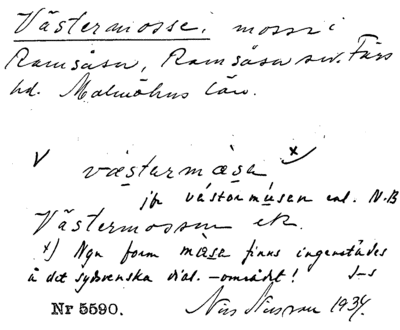 Västermosse, mosse i
Ramsåsa, Ramsåsa sn. Färs
hd. Malmöhus län.
√ västərmåsa x)
jfr västərmåsen enl. N.B
Västermossen ek.
x) Ngn form måsa finns ingenstädes
å det sydsvenska dial.-området! J-s
Nr 5590. Nils Nilsson 1934.